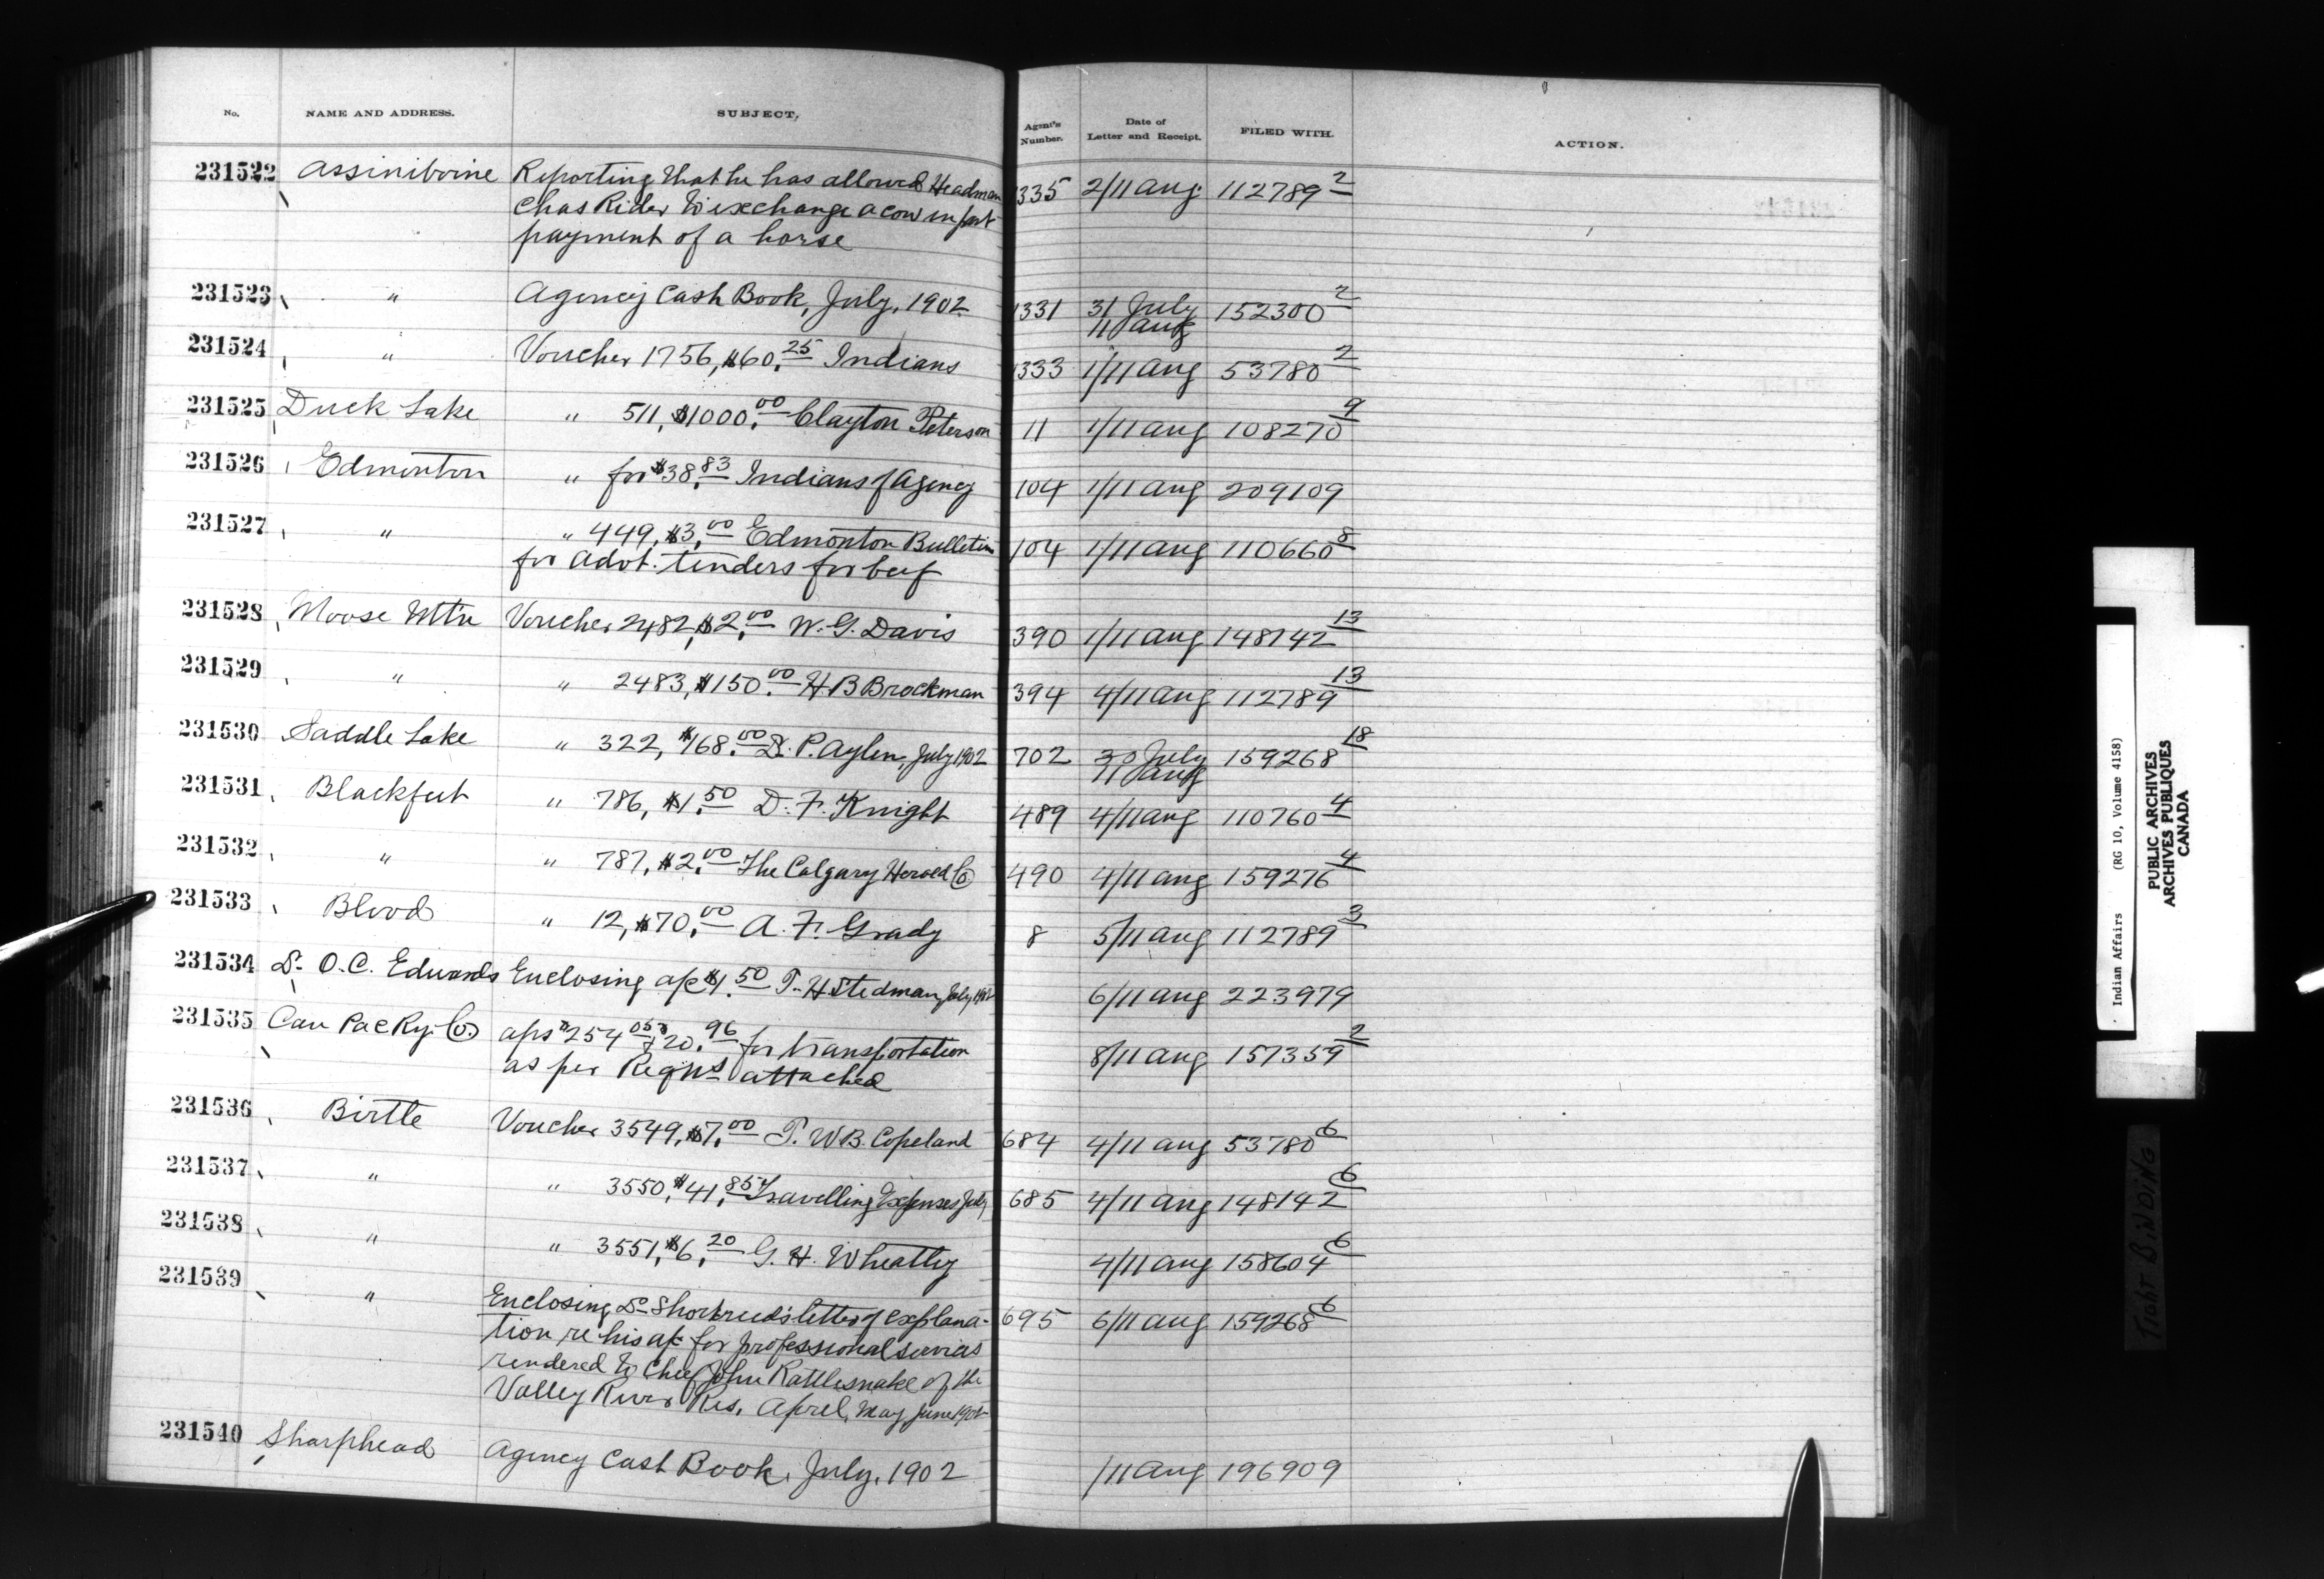 No. NAME AND ADDRESS. SUBJECT, Agent's Number. Date of Letter and Receipt. FILED WITH. ACTION.
231522 Assiniboine Reporting that he has allowed Headman 1335 2/11 Aug. 112789 2
Chas Rider to exchange a cow in part
payment of a horse
231523 " Agency Cash Book, July, 1902 1331 31 July 152300 2
11 Aug
231524 " Voucher 1756, $60.25 Indians 1333 1/11 Aug 53780 2
231525 Duck Lake " 511, $1000.00 Clayton Peterson 11 1/11 Aug 108270 9
231526 Edmonton " for $38.83 Indians of Agency 104 1/11 Aug 209109
231527 " " 449, $3.00 Edmonton Bulletin 104 1/11 Aug 110660 8
for Advt. tenders for beef
231528 Moose Mt'n Voucher 2482, $2.00 W. G. Davis 390 1/11 Aug 148142 13
231529 " " 2483, $150.00 H B Brockman 394 4/11 Aug 112789 13
231530 Saddle Lake " 322, $168.00 Dr. P. Aylen, July 1902 702 30 July 159268 18
11 Aug
231531 Blackfeet " 786, $1.50 D. F. Knight 489 4/11 Aug 110760 4
231532 " " 787, $2.00 The Calgary Herald Co 490 4/11 Aug 159276 4
231533 Blood " 12, $70.00 A. F. Grady 8 5/11 Aug 112789 3
231534 Dr. O. C. Edwards Enclosing a/c $1.50 T. H Stedman, July, 1902 6/11 Aug 223979
231535 Can Pac Ry. Co a/cs $254.05 & 20.96 for transportation 8/11 Aug 157359 2
as per Reqns attached
231536 Birtle Voucher 3549, $7.00 T. W B. Copeland 684 4/11 Aug 53780 6
231537 " " 3550, $41.85 Travelling Expenses July 685 4/11 Aug 148142 6
231538 " " 3551, $6.20 G. H. Wheatley 4/11 Aug 158604 6
231539 " Enclosing Dr Shortreed's letter of explana- 695 6/11 Aug 159268 6
tion re his a/c for professional services
rendered to Chief John Rattlesnake of the
Valley River Res. April, May June 1902
231540 Sharphead Agency Cash Book, July, 1902 /11 Aug 196909
Indian Affairs (RG 10, Volume 4158)
PUBLIC ARCHIVES
ARCHIVES PUBLIQUES
CANADA
TIGHT BINDING